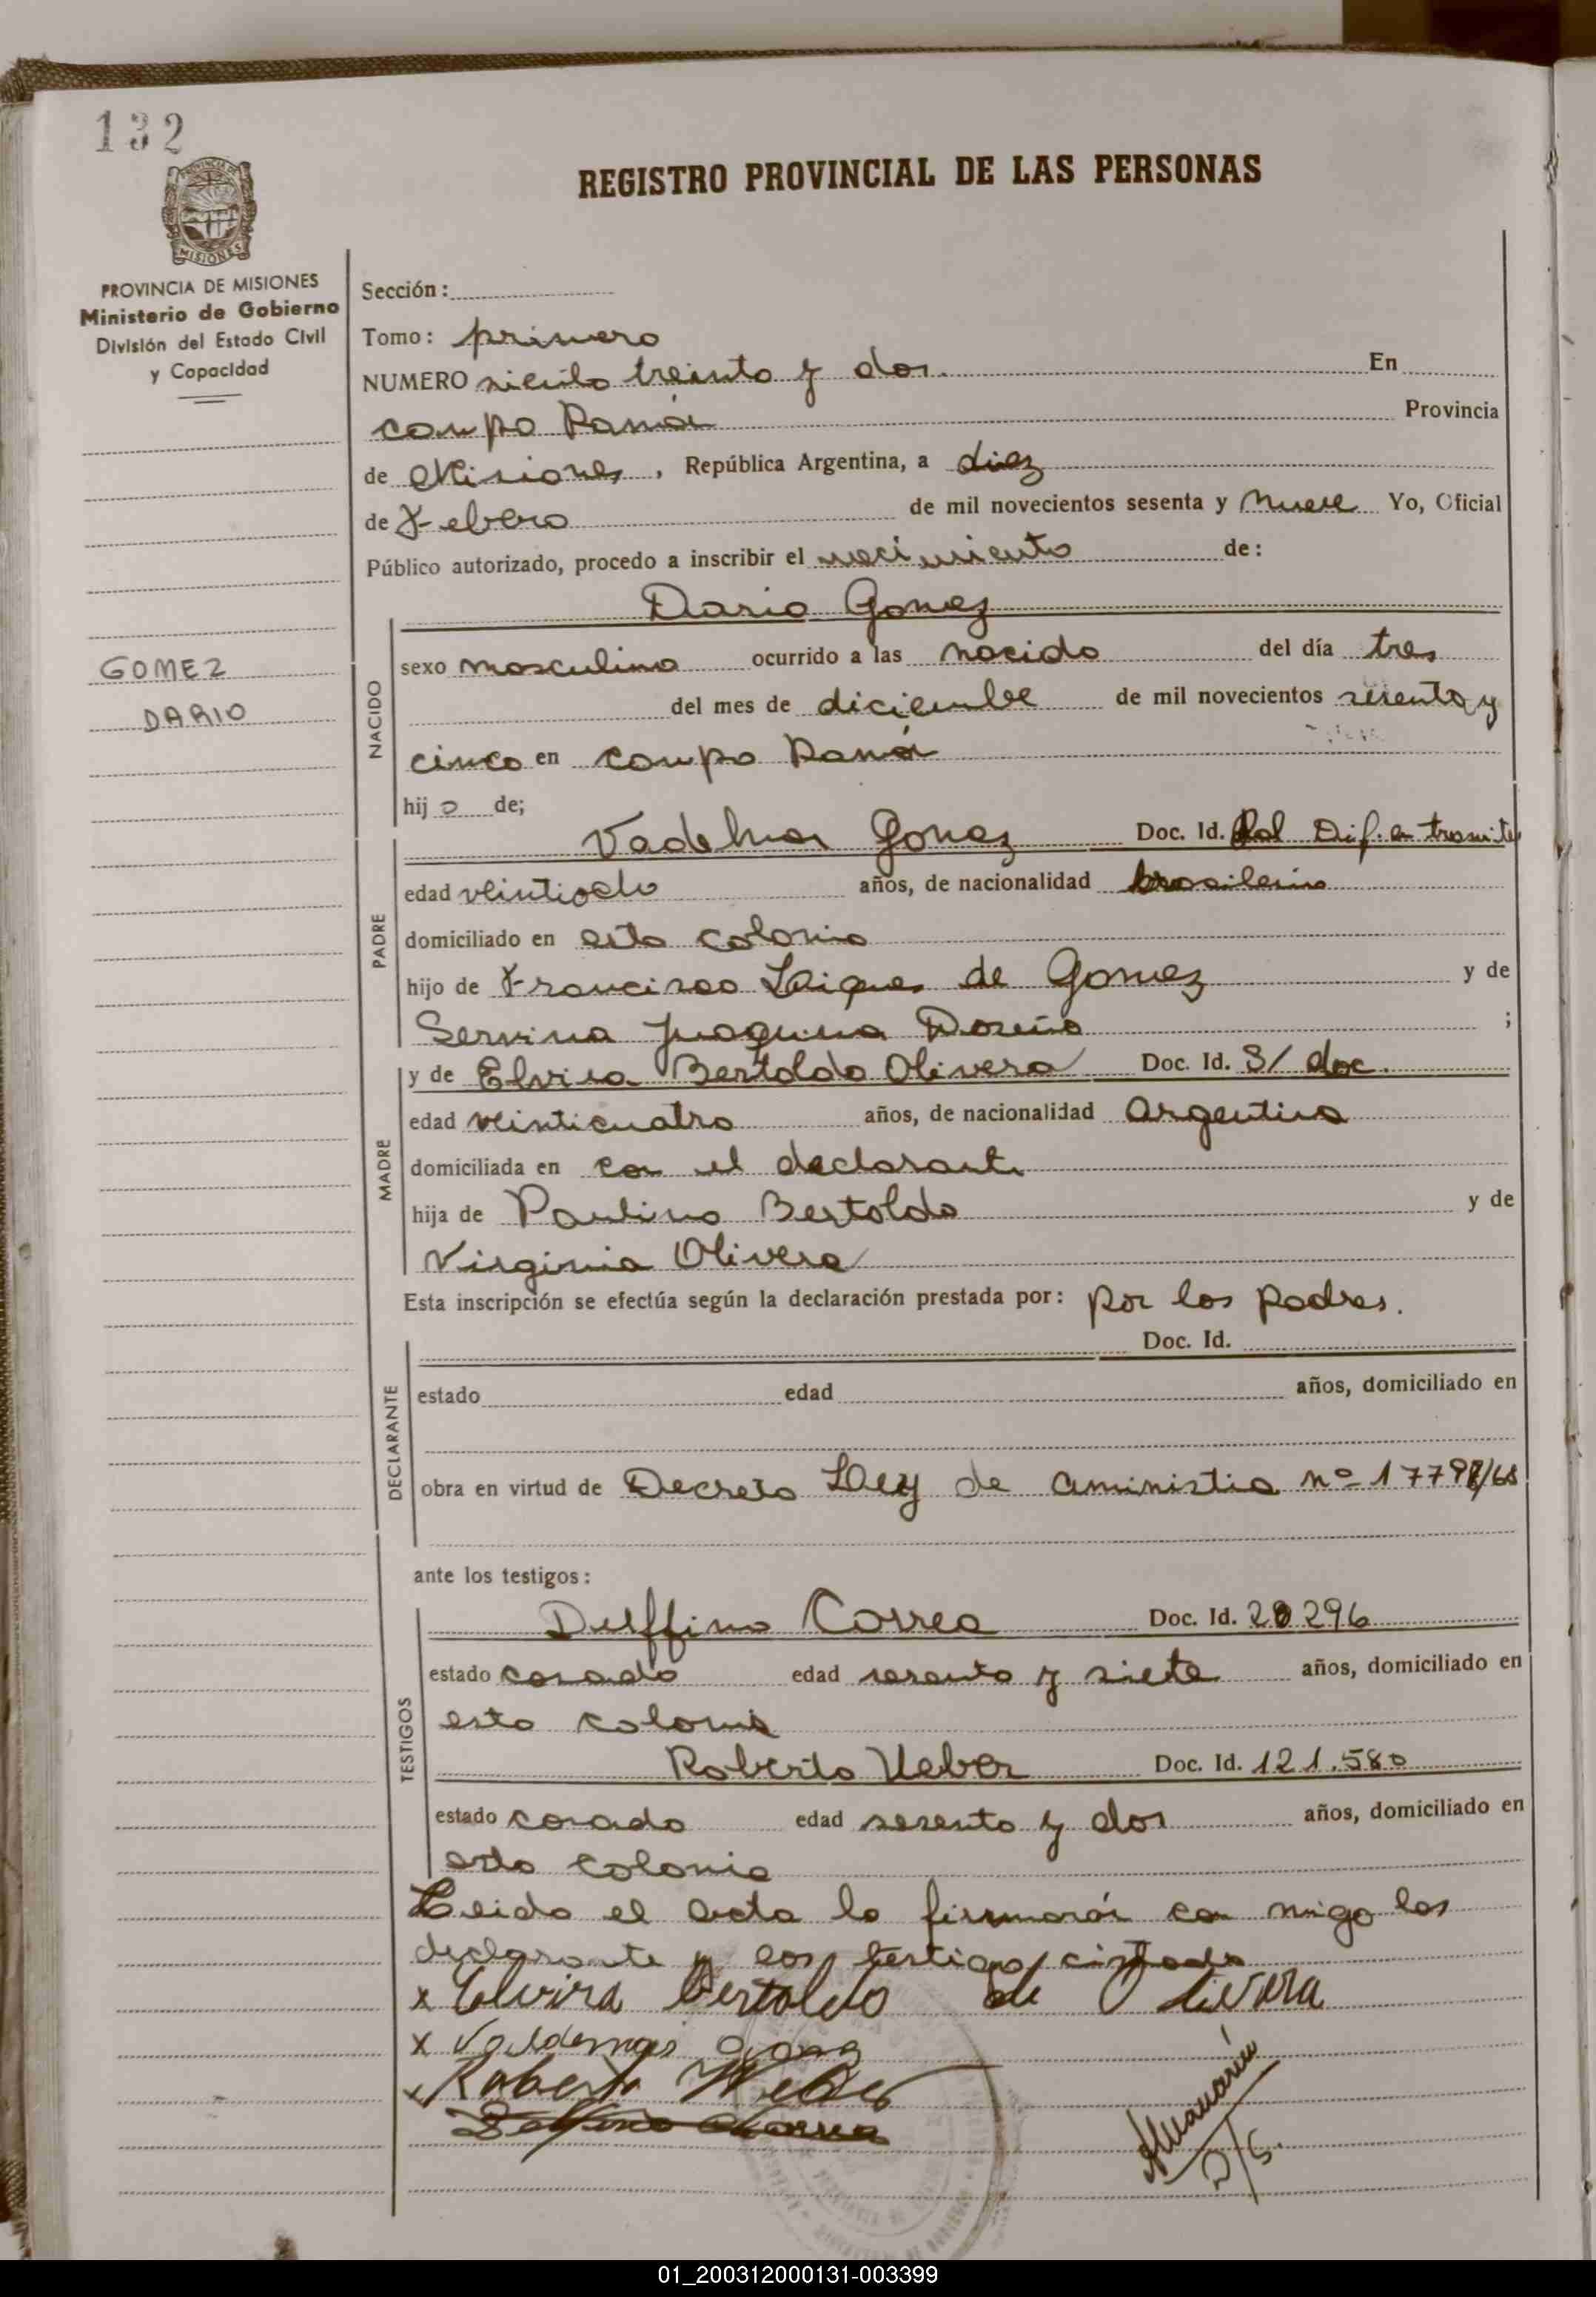 132
REGISTRO PROVINCIAL DE LAS PERSONAS
PROVINCIA DE MISIONES
Ministerio de Gobierno
División del Estado Civil
y Capacidad
GOMEZ
DARIO
Sección:
Tomo: primero
NUMERO siento treinta y dos. En
campo Ramón Provincia
de Misiones, República Argentina, a diez
de Febrero de mil novecientos sesenta y Nueve Yo, Oficial
Público autorizado, procedo a inscribir el nacimiento de:
Dario Gomez
NACIDO
sexo masculino ocurrido a las nacido del día tres
del mes de diciembre de mil novecientos sesenta y
cinco en campo Ramón
hijo de;
PADRE
Gomez Doc. Id. Pol Dif. en tramite
edad veintiocho años, de nacionalidad brasileño
domiciliado en esta colonia
hijo de Francisco de Gomez y de
Servina Juaquina ;
MADRE
y de Elvira Bertoldo Olivera Doc. Id. S/ doc.
edad veinticuatro años, de nacionalidad Argentina
domiciliada en con el declarante
hija de Paulino Bertoldo y de
Virginia Olivera
Esta inscripción se efectúa según la declaración prestada por: por los padres.
DECLARANTE
Doc. Id.
estado edad años, domiciliado en
obra en virtud de Decreto Ley de aministia nº
ante los testigos:
TESTIGOS
Delffino Correa Doc. Id. 296
estado casado edad sesenta y siete años, domiciliado en
esta colonia
Roberto Ueber Doc. Id. 121.580
estado casado edad sesenta y dos años, domiciliado en
esta colonia
Leida el acta la firmarán con migo los
declarante y los testigo citado
x Elvira Bertoldo de Olivera
x Valdemar
x Roberto Weber
01_200312000131-003399